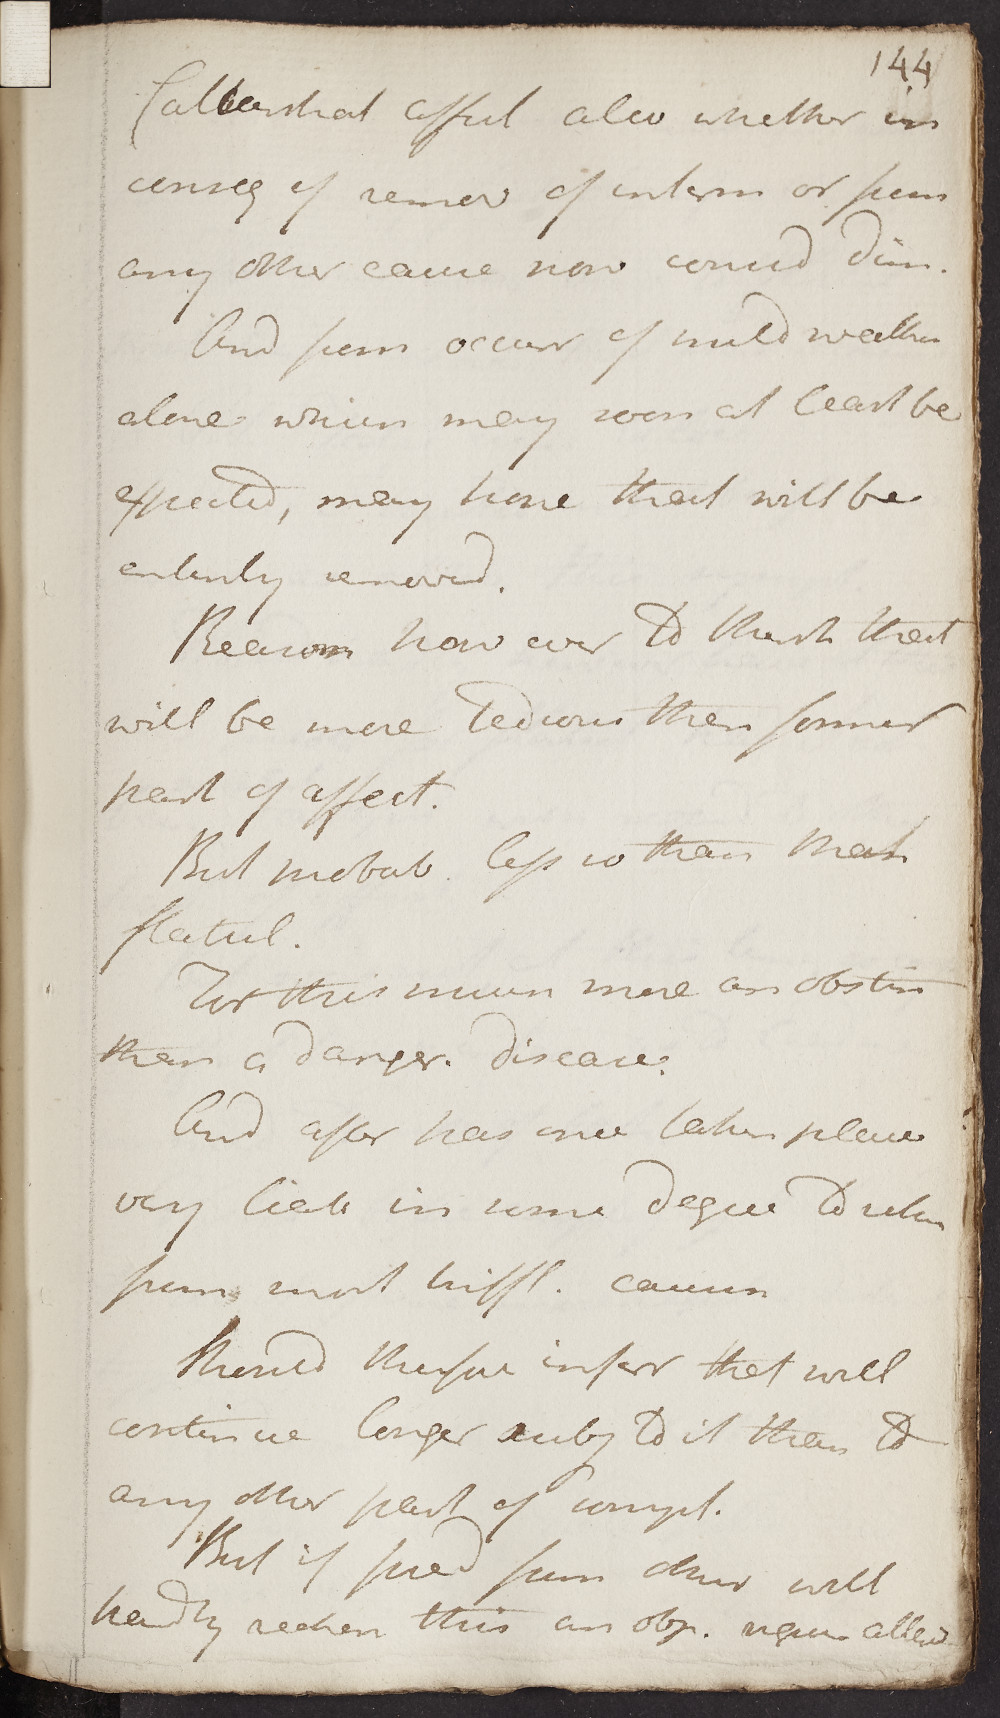 144
Catarrhal affect also whether in
conseq of remov of interm or from
any other cause now consid dim.
And from occurr of mild weather
alone which may soon at least be
expected, may hope that will be
entirely removed.
Reason however to think that
will be more tedious than former
part of affect.
But probab. less so than
flatul.
For this much more an obstin
than a danger. disease.
And after has once taken place
very liab in some degree to return
from most triffl. causes
Should therefore infer that will
continue longer subj to it than to
any other part of compl.
But if freed from other will
hardly reckon this an obj. requir attend